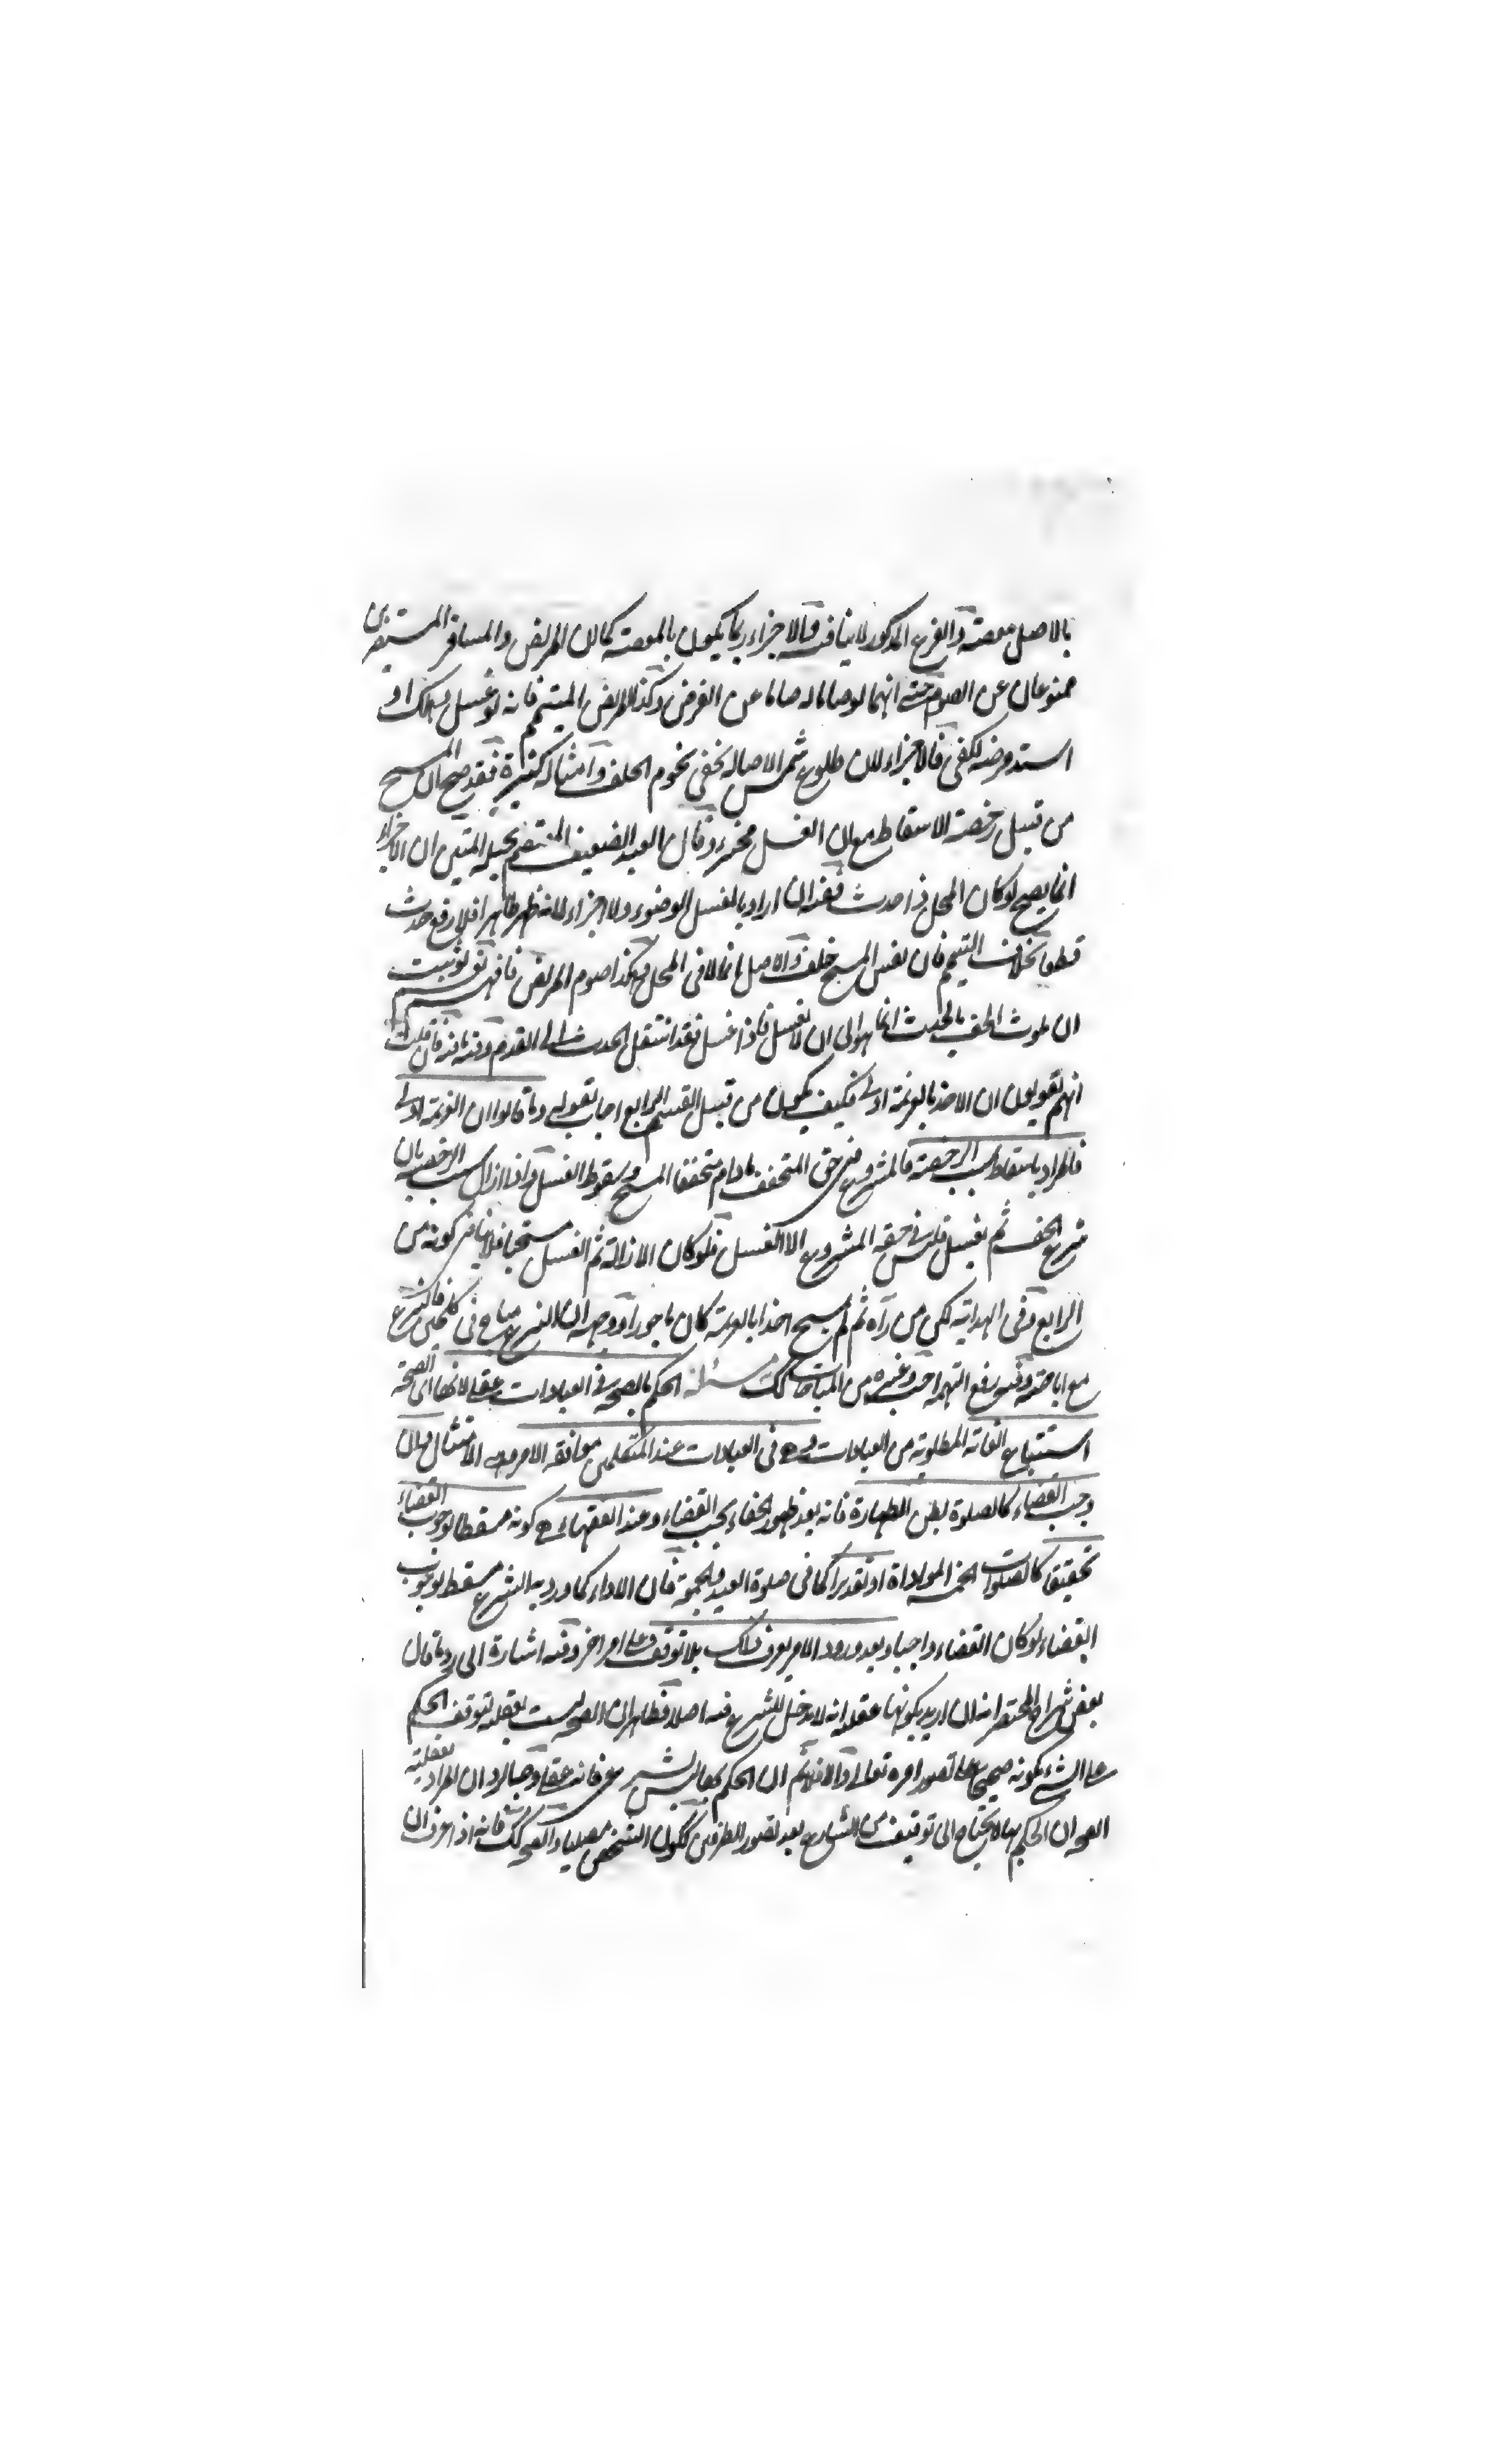 بالاصل معصية والفرع المذكور لا ينافيه والاجزاء ربما يكون بالمعصية كما ان المريض والمسافر
ممنوعان عن الصوم حتى انهما لو صاما له صاما عن الفرض وكذا المريض المتيمم فانه لو غسل وهلك او
اشتد مرضه لكفى فالاجزاء لان طلوع شمس الاصالة يخفى نجوم الخلف وامثاله كثيرة فقد صح ان المسح
من قبيل رخصة الاسقاط مع ان الغسل مجزء وقال العبد الضعيف المعتصم بحبله المتين ان الاجزاء
انما يصح لو كان المحل ذا حدث ففيه ان اراد بالغسل الوضوء ولا اجزاء لانه ظهر طاهرا فلا رفع حدث
قطعا بخلاف التيمم فان نفس المسح خلف والاصل انما لاقى المحل وهكذا صوم المريض فافهم نعم لو ثبت
ان تلوث الخف بالحدث انما هو الى ان لا يغسل فاذا غسل فقد انتقل الحدث الى القدم وفيه ما فيه فان قلت
انهم يقولون ان الاخذ بالعزيمة اولى فكيف يكون من قبيل القسم الرابع اجاب بقوله وما قالوا ان العزيمة اولى
فالمراد باسقاط سبب الرخصة فالمشروع في حق المتخفف ما دام متخففا المسح وسقوط الغسل واذا ازال سبب الرخصة بان
نزع الخف ثم يغسل فليس في حقه المشروع الا الغسل فلو كان الازالة ثم الغسل مستحبا فلا ينافي كونه من
الرابع وفى الهداية لكن من رآه ثم لم يمسح اخذا بالعزيمة كان ماجورا ووجهه ان النزع مباح فى كل حين فالنزع
مع اباحته وفيه رفع التهمة احب وغيره من المباحات كك مسئلة الحكم بالصحة في العبادات عقلى لانها اى الصحة
استتباع الغاية المطلوبة من العبادات وهى فى العبادات عند المتكلمين موافقة الامر وهى الامتثال وان
وجب القضاء كالصلوة بظن الطهارة فانه بعد ظهور الخفاء يجب القضاء وعند الفقهاء هى كونه مسقطا لوجوب القضاء
تحقيقا كالصلوات الخمسة المؤداة او تقديرا كما فى صلوة العيد والجمعة فان الاداء كما ورد به الشرع مسقط لوجوب
القضاء لو كان القضاء واجبا وبعد ورود الامر يعرف ذلك بلا توقف على امر اخر وفيه اشارة الى رد ما قال
بعض شراح المختصر انه ان اريد بكونها عقلية انه لا مدخل للشرع فيه اصلا فظاهر ان الصحة ليست بعقلية لتوقف الحكم
على الشئ بكونه صحيحا على تصور امره تعالى والا فلا نم ان الحكم بها ليس بشرعى فانه عقلى وجه الرد ان المراد بعقلية
الصحة ان الحكم بها لا يحتاج الى توقيف من الشارع بعد تصور الطرفين ككون الشخص مصليا والصحة كك فانه اذا عرف ان